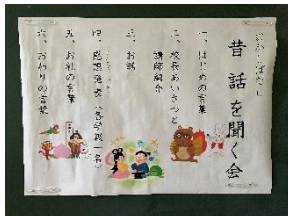 むかしばなし
昔話を聞く会
一、はじめの言葉
二、校長あいさつと
講師紹介
三、お話
四、感想発表(各学級一名)
五、お礼の言葉
六、おわりの言葉